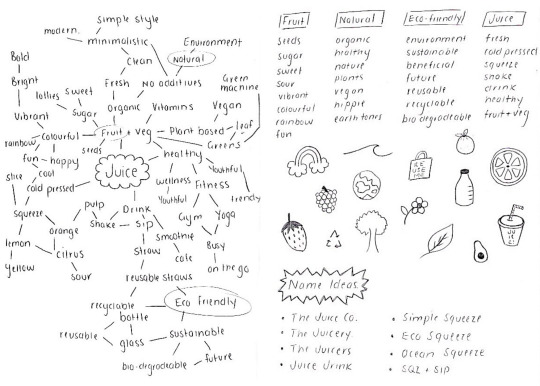 modern
simple style
minimalistic
Environment
Natural
Clean
Bold
Bright
Fresh
No additives
Green
machine
lollies
sweet
Sugar
Organic
Vitamins
Vegan
Vibrant
rainbow
Colourful
Fruit + Veg
Plant based
leaf
Greens
seeds
fun
happy
healthy
Juice
cool
cold pressed
slice
wellness
Youthful
Fitness
Youthful
trendy
squeeze
pulp
Drink
Gym
Yoga
orange
shake
Sip
smoothie
cafe
Busy
on the go
lemon
yellow
citrus
sour
straw
reusable straws
recyclable
bottle
Eco friendly
reusable
glass
sustainable
bio-degradeable
future
Fruit
seeds
sugar
sweet
sour
vibrant
colourful
rainbow
fun
Natural
organic
healthy
nature
plants
vegan
hippie
earth tones
Eco-friendly
environment
sustainable
beneficial
future
reusable
recyclable
bio degradeable
Juice
fresh
cold pressed
squeeze
shake
drink
healthy
fruit + veg
RE
USE
ME
JU
ICE
Name Ideas
• The Juice Co.
• The Juicery
• The Juicers
• Juice Drink
• Simple Squeeze
• Eco Squeeze
• Ocean Squeeze
• SQZ + SIP